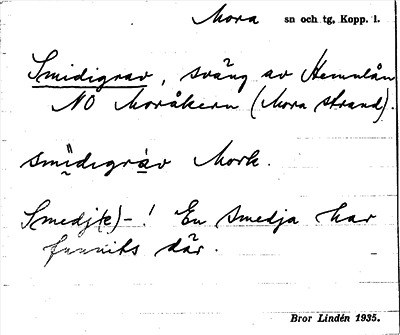 Mora sn och tg, Kopp. l.
Smidigrav, sväng av Hemulån
NO Moråkern (Mora strand).
smi̤digrav Mork.
Smedj(e)-! En smedja har
funnits där.
Bror Lindén 1935.